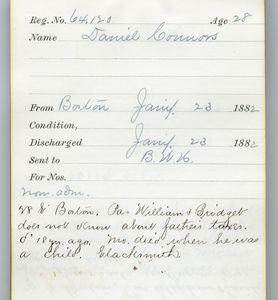 Reg. No. 64,120 Age 28
Name Daniel Connors
From Boston Jany. 23 1882
Condition,
Discharged Jany. 23 1882
Sent to B.W.H.
For Nos.
nom. adm.
28 W Boston, Pa. William & Bridget
does not know about father's taxes.
18 yrs. ago. Mo. died when he was
a child. Blacksmith.